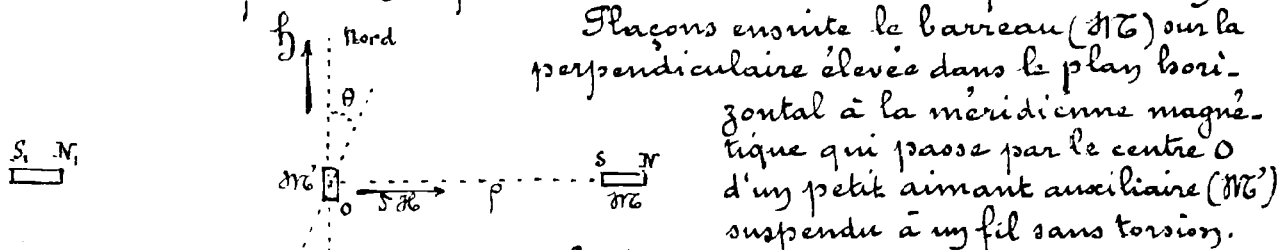 Plaçons ensuite le barreau (𝔐) sur la
perpendiculaire élevée dans le plan hori-
zontal à la méridienne magné-
tique qui passe par le centre O
d'un petit aimant auxiliaire (𝔐')
suspendu à un fil sans torsion.
ℌ Nord
θ
S₁ N₁
S N
𝔐' O ρ 𝔐